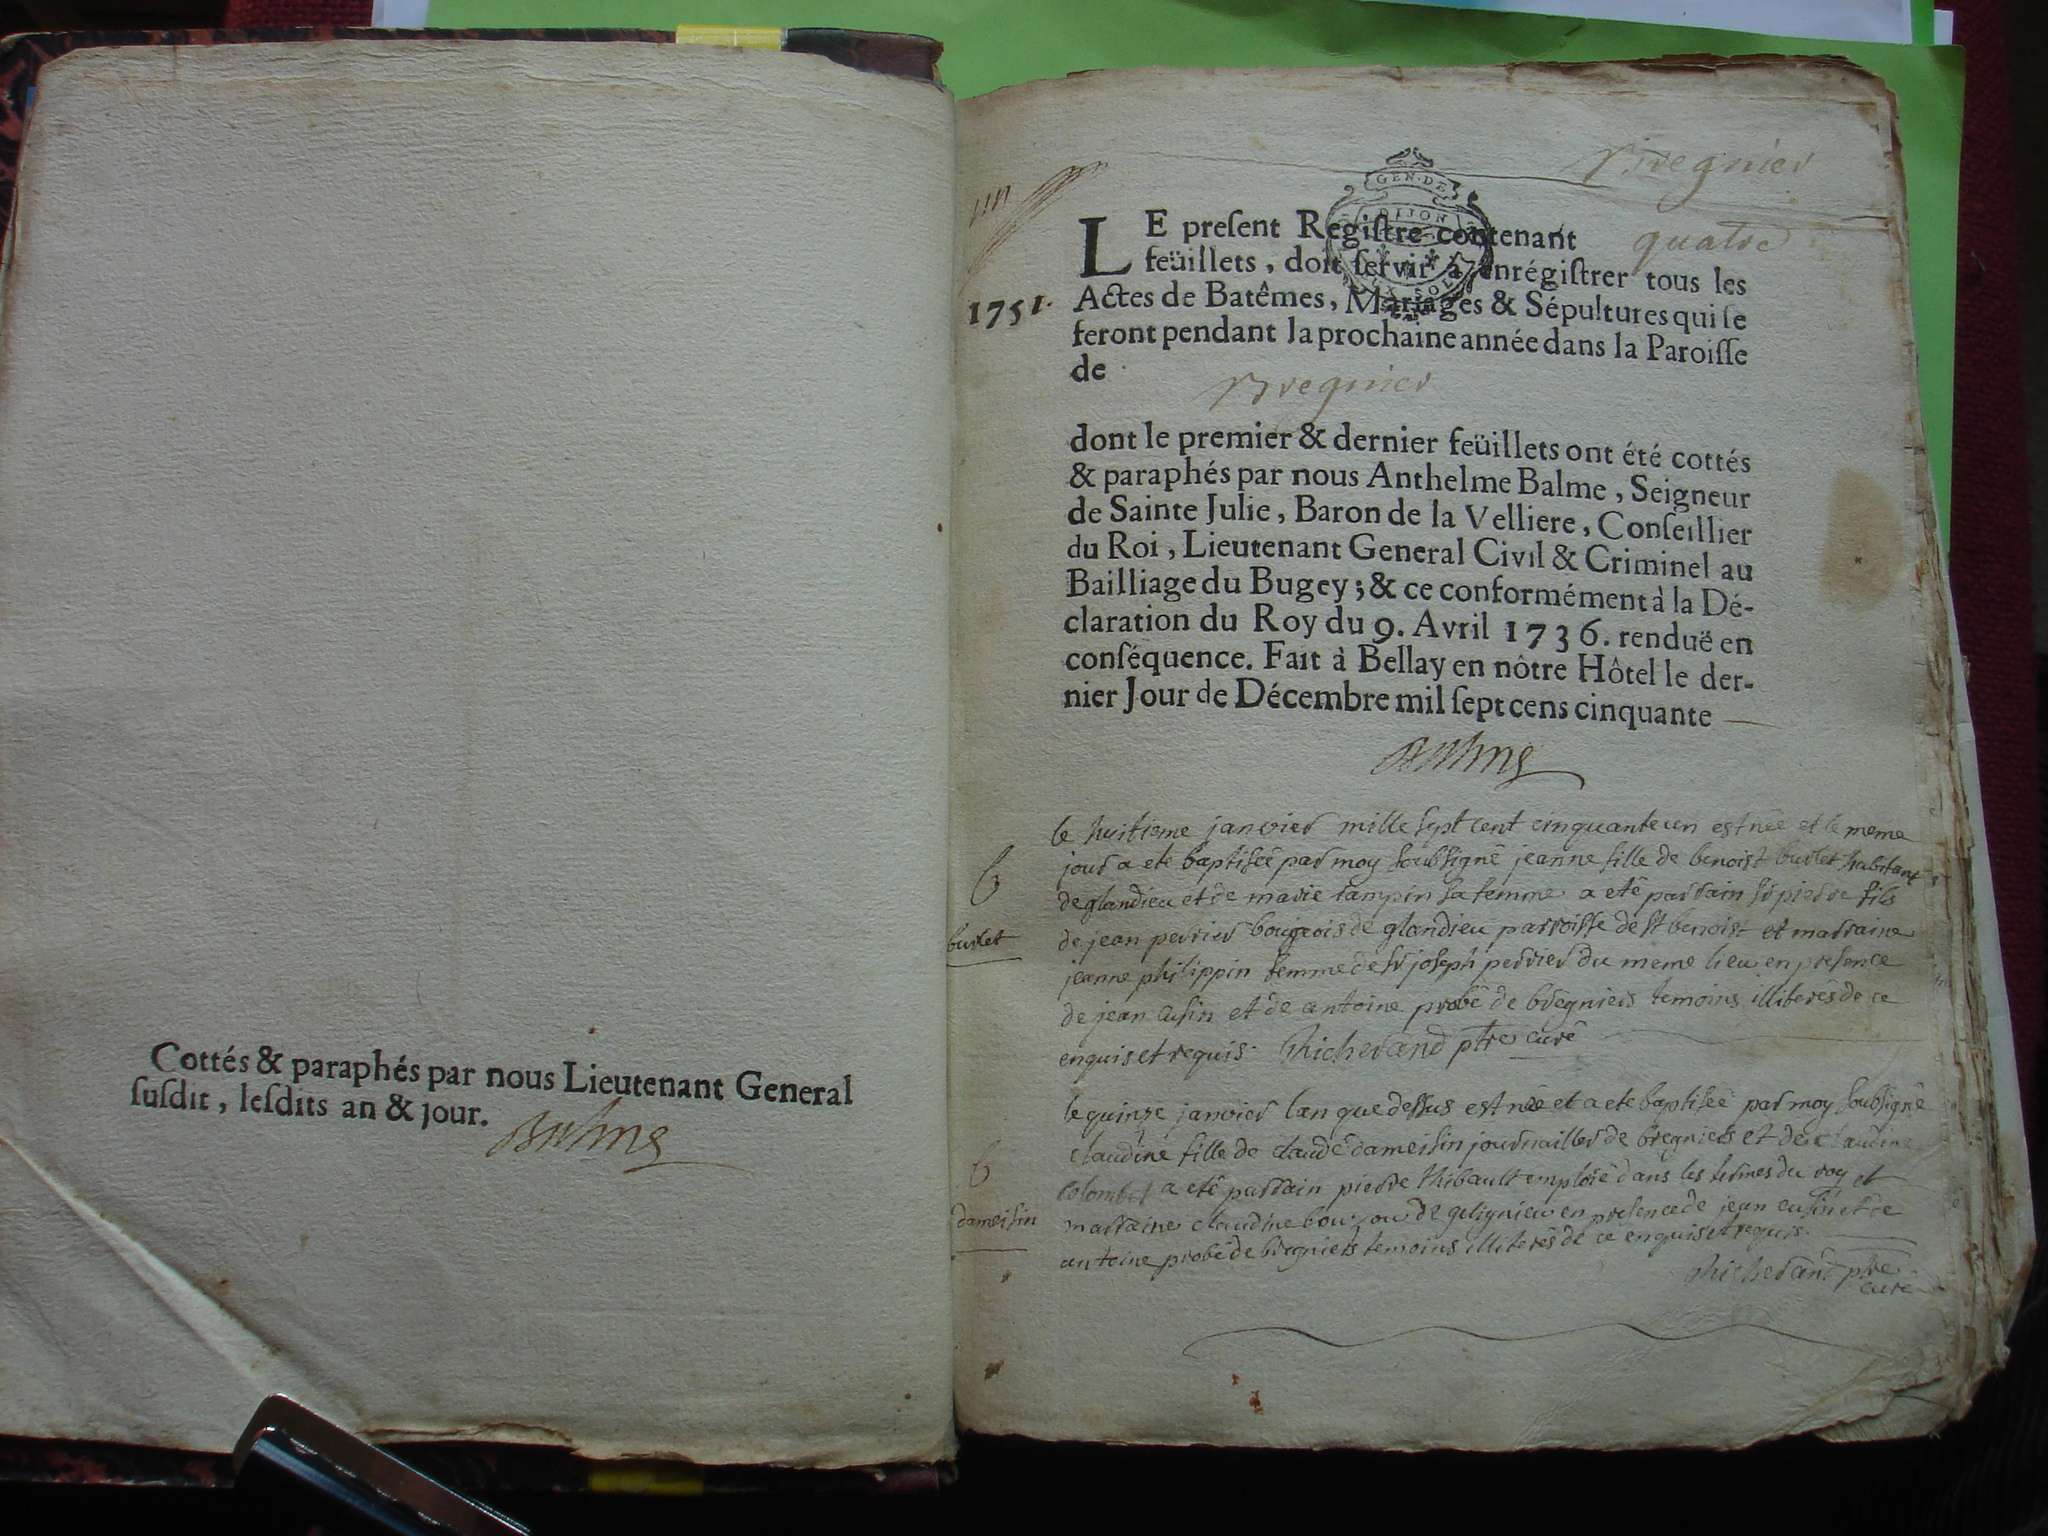 Cottés & paraphés par nous Lieutenant General
susdit, lesdits an & jour.
Balme
Bregnier
GEN. DE
DIJON
LE present Registre contenant quatre
feüillets, doit servir à enrégistrer tous les
1751. Actes de Batêmes, Mariages & Sépultures qui se
feront pendant la prochaine année dans la Paroisse
de
Bregnier
dont le premier & dernier feüillets ont été cottés
& paraphés par nous Anthelme Balme, Seigneur
de Sainte Julie, Baron de la Velliere, Conseillier
du Roi, Lieutenant General Civil & Criminel au
Bailliage du Bugey; & ce conformément à la Dé-
claration du Roy du 9. Avril 1736. renduë en
conséquence. Fait à Bellay en nôtre Hôtel le der-
nier Jour de Décembre mil sept cens cinquante
Balme
le huitieme janvier mille sept cent cinquante un est née et le meme
jour a ete baptiseé par moy soubsigné jeanne fille de benoist burlet habitant
b
de glandieu et de marie tampin sa femme a eté parrain sr pierre fils
burlet
de jean perrier bougeois de glandieu parroisse de st benoist et marraine
jeanne philippin femme de sr joseph perrier du meme lieu en presence
de jean cusin et de antoine probé de bregniers temoins illiterés de ce
enquis et requis. Richerand ptre curé
le quinze janvier l'an que dessus est née et a ete baptiseé par moy soubsigné
claudine fille de claude dameisin journaillier de bregniers et de claudine
b
colombet a eté parrain pierre thibault emploié dans les fermes du roy et
dameisin
marraine claudine de gelignieu en presence de jean cusin et de
antoine probé de bregniers temoins illiterés de ce enquis et requis.
Richerand ptre
curé